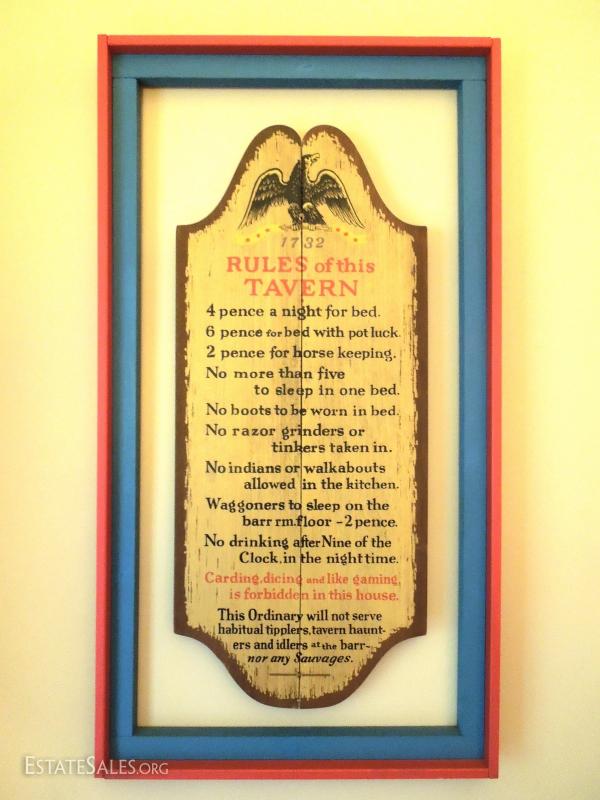 1732
RULES of this
TAVERN
4 pence a night for bed.
6 pence for bed with pot luck.
2 pence for horse keeping.
No more than five
to sleep in one bed.
No boots to be worn in bed.
No razor grinders or
tinkers taken in.
No indians or walkabouts
allowed in the kitchen.
Waggoners to sleep on the
barr rm. floor - 2 pence.
No drinking after Nine of the
Clock, in the night time.
Carding, dicing and like gaming,
is forbidden in this house.
This Ordinary will not serve
habitual tipplers, tavern haunt-
ers and idlers at the barr-
nor any Sauvages.
ESTATESALES.ORG